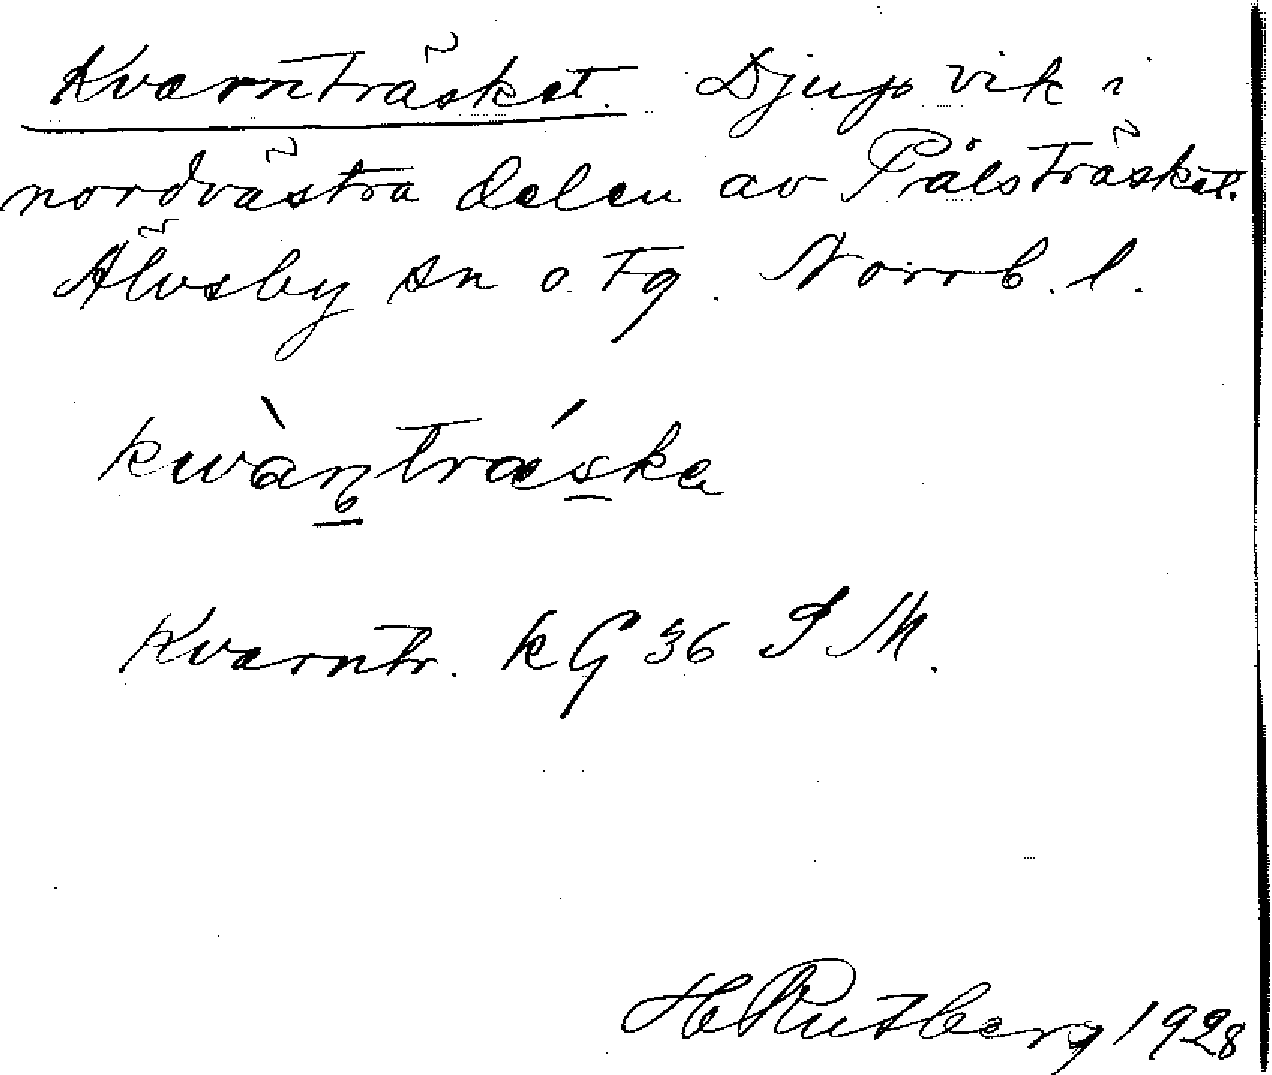 Kvarnträsket. Djup vik i
nordvästra delen av Pålsträsket.
Älvsby sn o. tg. Norrb. l.
kwàṇtráska
Kvarntr. kG 36 S M.
H Rutberg 1928